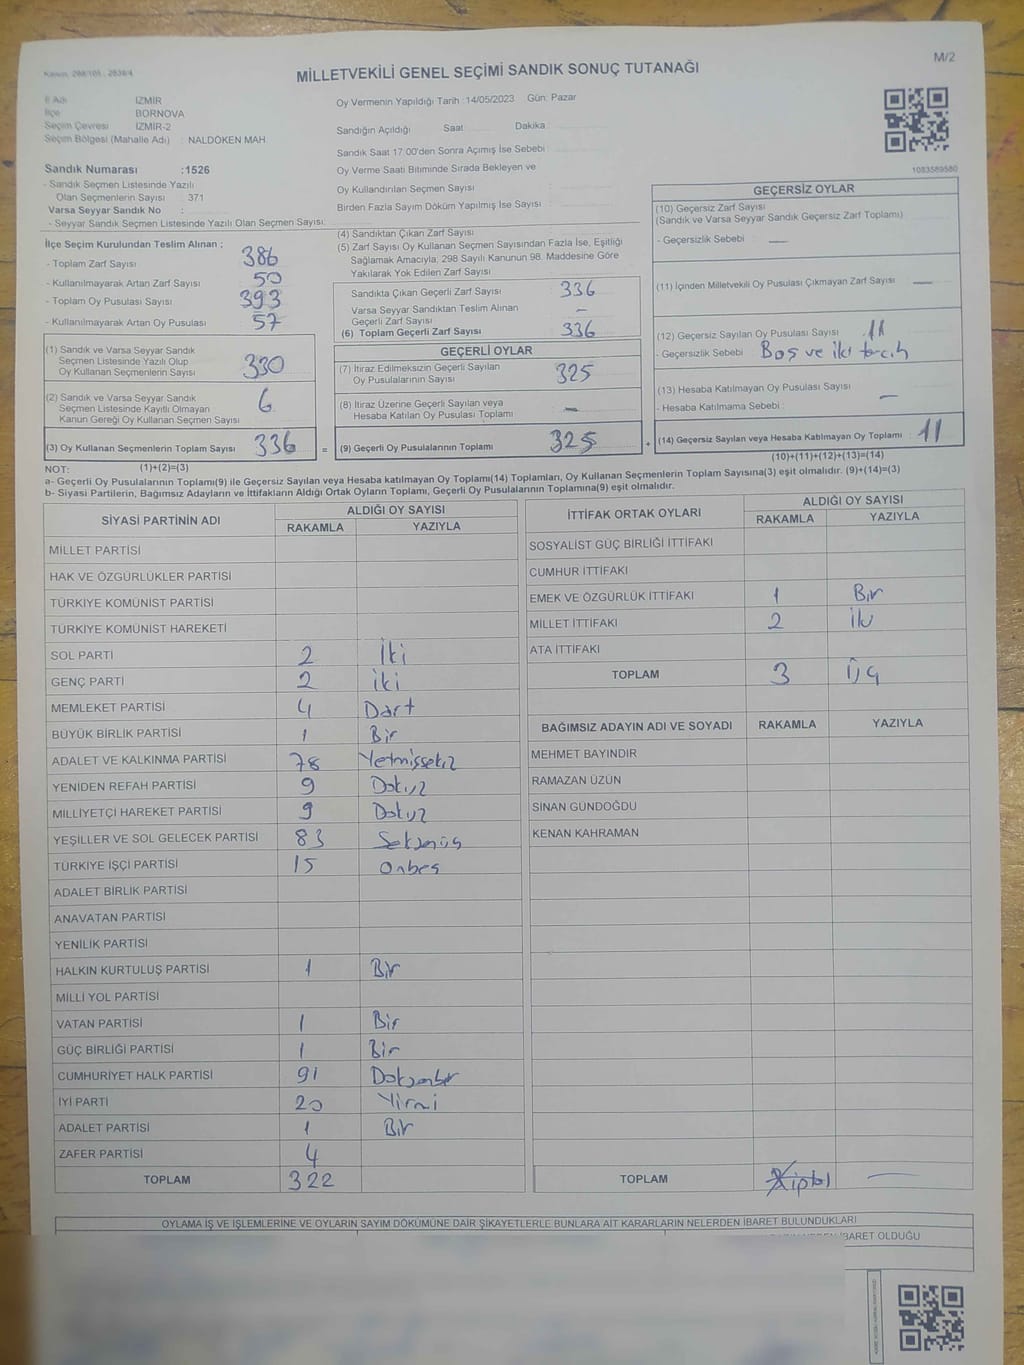 Kanun: 298/105 , 2839/4
M/2
MİLLETVEKİLİ GENEL SEÇİMİ SANDIK SONUÇ TUTANAĞI
İl Adı İZMİR
İlçe BORNOVA
Seçim Çevresi İZMİR-2
Seçim Bölgesi (Mahalle Adı) : NALDÖKEN MAH
Sandık Numarası :1526
- Sandık Seçmen Listesinde Yazılı
Olan Seçmenlerin Sayısı : 371
Varsa Seyyar Sandık No :
- Seyyar Sandık Seçmen Listesinde Yazılı Olan Seçmen Sayısı:
Oy Vermenin Yapıldığı Tarih :14/05/2023 Gün: Pazar
Sandığın Açıldığı Saat Dakika
Sandık Saat 17:00'den Sonra Açımış İse Sebebi :
Oy Verme Saati Bitiminde Sırada Bekleyen ve
Oy Kullandırılan Seçmen Sayısı :
Birden Fazla Sayım Döküm Yapılmış İse Sayısı :
1083589580
İlçe Seçim Kurulundan Teslim Alınan ;
- Toplam Zarf Sayısı 386
- Kullanılmayarak Artan Zarf Sayısı 50
- Toplam Oy Pusulası Sayısı 393
- Kullanılmayarak Artan Oy Pusulası 57
(1) Sandık ve Varsa Seyyar Sandık
Seçmen Listesinde Yazılı Olup
Oy Kullanan Seçmenlerin Sayısı 330
(2) Sandık ve Varsa Seyyar Sandık
Seçmen Listesinde Kayıtlı Olmayan
Kanun Gereği Oy Kullanan Seçmen Sayısı 6
(3) Oy Kullanan Seçmenlerin Toplam Sayısı 336 =
(4) Sandıktan Çıkan Zarf Sayısı
(5) Zarf Sayısı Oy Kullanan Seçmen Sayısından Fazla İse, Eşitliği
Sağlamak Amacıyla; 298 Sayılı Kanunun 98. Maddesine Göre
Yakılarak Yok Edilen Zarf Sayısı
Sandıkta Çıkan Geçerli Zarf Sayısı 336
Varsa Seyyar Sandıktan Teslim Alınan
Geçerli Zarf Sayısı —
(6) Toplam Geçerli Zarf Sayısı 336
GEÇERLİ OYLAR
(7) İtiraz Edilmeksizin Geçerli Sayılan
Oy Pusulalarının Sayısı 325
(8) İtiraz Üzerine Geçerli Sayılan veya
Hesaba Katılan Oy Pusulası Toplamı —
(9) Geçerli Oy Pusulalarının Toplamı 325 +
GEÇERSİZ OYLAR
(10) Geçersiz Zarf Sayısı
(Sandık ve Varsa Seyyar Sandık Geçersiz Zarf Toplamı)
- Geçersizlik Sebebi : —
(11) İçinden Milletvekili Oy Pusulası Çıkmayan Zarf Sayısı —
(12) Geçersiz Sayılan Oy Pusulası Sayısı 11
- Geçersizlik Sebebi Boş ve iki tercih
(13) Hesaba Katılmayan Oy Pusulası Sayısı
- Hesaba Katılmama Sebebi : —
(14) Geçersiz Sayılan veya Hesaba Katılmayan Oy Toplamı 11
NOT: (1)+(2)=(3) (10)+(11)+(12)+(13)=(14)
a- Geçerli Oy Pusulalarının Toplamı(9) ile Geçersiz Sayılan veya Hesaba katılmayan Oy Toplamı(14) Toplamları, Oy Kullanan Seçmenlerin Toplam Sayısına(3) eşit olmalıdır. (9)+(14)=(3)
b- Siyasi Partilerin, Bağımsız Adayların ve İttifakların Aldığı Ortak Oyların Toplamı, Geçerli Oy Pusulalarının Toplamına(9) eşit olmalıdır.
SİYASİ PARTİNİN ADI ALDIĞI OY SAYISI
RAKAMLA YAZIYLA
MİLLET PARTİSİ
HAK VE ÖZGÜRLÜKLER PARTİSİ
TÜRKİYE KOMÜNİST PARTİSİ
TÜRKİYE KOMÜNİST HAREKETİ
SOL PARTİ 2 İki
GENÇ PARTİ 2 İki
MEMLEKET PARTİSİ 4 Dört
BÜYÜK BİRLİK PARTİSİ 1 Bir
ADALET VE KALKINMA PARTİSİ 78 Yetmişsekiz
YENİDEN REFAH PARTİSİ 9 Dokuz
MİLLİYETÇİ HAREKET PARTİSİ 9 Dokuz
YEŞİLLER VE SOL GELECEK PARTİSİ 83 Seksenüç
TÜRKİYE İŞÇİ PARTİSİ 15 Onbeş
ADALET BİRLİK PARTİSİ
ANAVATAN PARTİSİ
YENİLİK PARTİSİ
HALKIN KURTULUŞ PARTİSİ 1 Bir
MİLLİ YOL PARTİSİ
VATAN PARTİSİ 1 Bir
GÜÇ BİRLİĞİ PARTİSİ 1 Bir
CUMHURİYET HALK PARTİSİ 91 Doksanbir
İYİ PARTİ 20 Yirmi
ADALET PARTİSİ 1 Bir
ZAFER PARTİSİ 4
TOPLAM 322
İTTİFAK ORTAK OYLARI ALDIĞI OY SAYISI
RAKAMLA YAZIYLA
SOSYALİST GÜÇ BİRLİĞİ İTTİFAKI
CUMHUR İTTİFAKI
EMEK VE ÖZGÜRLÜK İTTİFAKI 1 Bir
MİLLET İTTİFAKI 2 İki
ATA İTTİFAKI
TOPLAM 3 Üç
BAĞIMSIZ ADAYIN ADI VE SOYADI RAKAMLA YAZIYLA
MEHMET BAYINDIR
RAMAZAN ÜZÜN
SİNAN GÜNDOĞDU
KENAN KAHRAMAN
TOPLAM iptal —
OYLAMA İŞ VE İŞLEMLERİNE VE OYLARIN SAYIM DÖKÜMÜNE DAİR ŞİKAYETLERLE BUNLARA AİT KARARLARIN NELERDEN İBARET BULUNDUKLARI
İBARET OLDUĞU